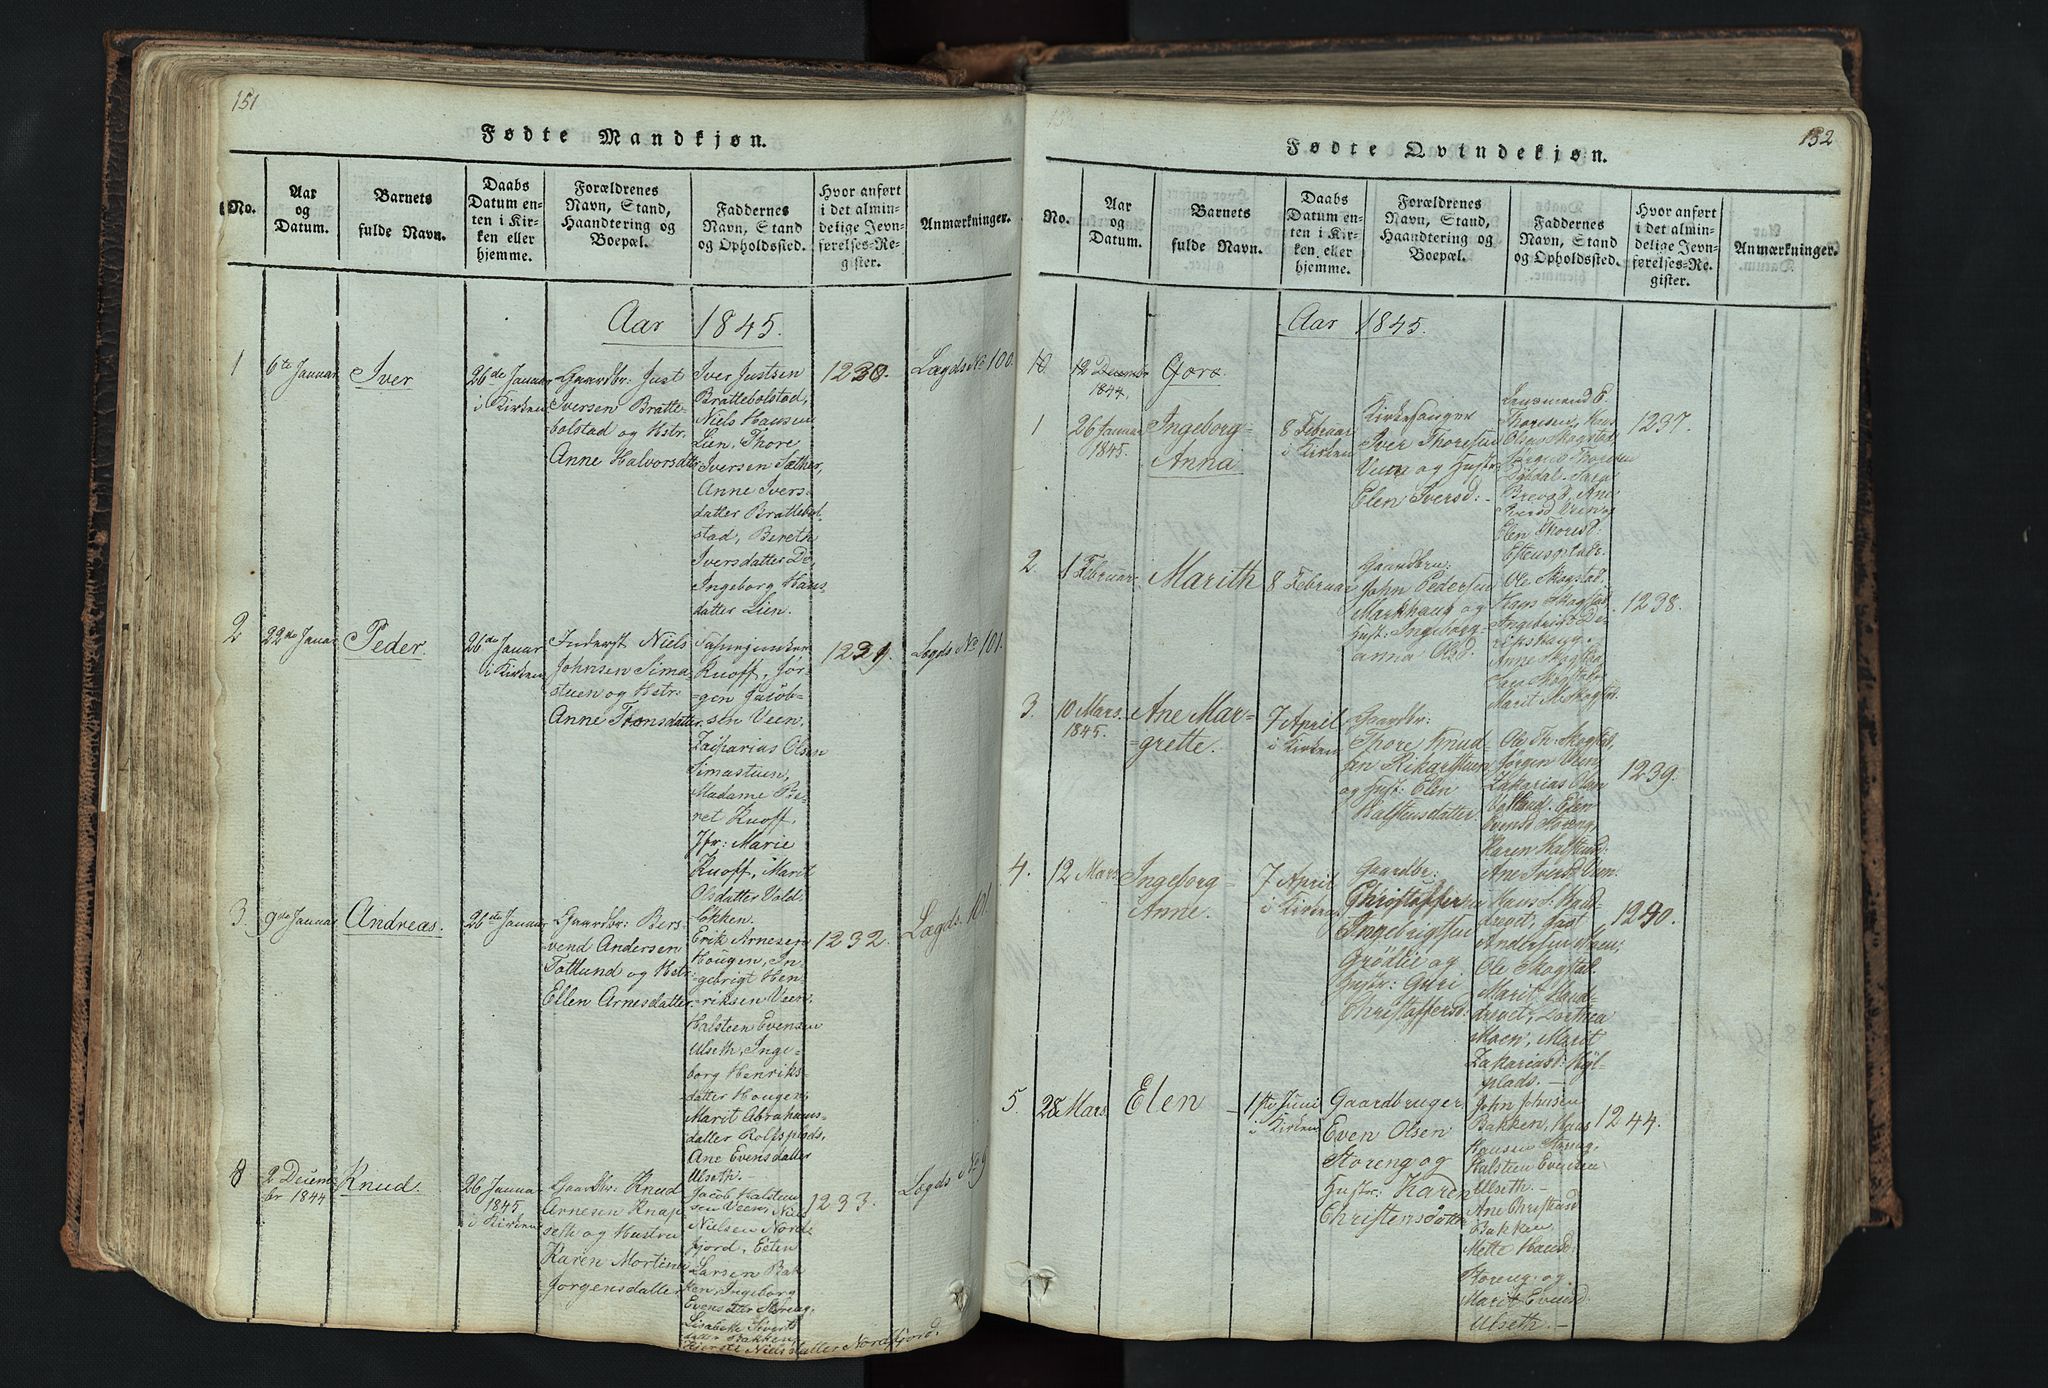 151
Fødte Mandkjøn.
No.
Aar
og
Datum.
Barnets
fulde Navn.
Daabs
Datum en-
ten i Kir-
ken eller
hjemme.
Forældrenes
Navn, Stand,
Haandtering og
Boepæl.
Faddernes
Navn, Stand
og Opholdssted.
Hvor anført
i det almin-
delige Jevn-
førelses-Re-
gister.
Anmærkninger.
Aar 1845.
1
6te Januar
Iver
26de Januar
i Kirken
Gaardbr: Just
Iversen Bratte-
bolstad og Hstr.
Anne Halvorsdatter
Iver Justsen
Brattebolstad,
Niels Hansen
Lien, Thore
Iversen Sæther,
Anne Ivers-
datter Brattebol-
stad, Bereth
Iversdatter Do,
Ingeborg Hans
datter Lien.
1230.
Lægds No 100.
2
22de Januar
Peder.
26de Januar
i Kirken
Inderst Niels
Johnsen Sima-
stuen og Hstr:
Anne Tronsdatter
Knoff, Jør-
gen Jacob-
sen Veen.
Zacharias Olsen
Simastuen,
Madame Be-
ret Knoff,
Jfr: Marie
Knoff, Marit
Olsdatter Vold
Løkken.
1231
Lægds No 101.
3
9de Januar
Andreas.
26de Januar
Gaardbr: Ber-
svend Andersen
Totlund og Hstr:
Ellen Arnesdatter
Erik Arnesen
Hougen, In-
gebrigt Hen-
riksen Veen,
Halsteen Evensen
Ulseth, Inge-
borg Henriks-
datter Hougen,
Marit Abrahams-
datter Rolfsplads,
Ane Evensdatter
Ulseth.-
1232.
Lægds 101.
8
2 Decem-
br 1844
Knud.
26 Januar
1845
i Kirken
Gaardbr: Knud
Arnesen Knap
seth og Hustru
Karen Mortine
Jørgensdatter
Jacob Halsteen
sen Veen, Niels
Nielsen Nord-
fjord, Esten
Larsen Bak
ken, Ingeborg
Evensdtr Storeng,
Lisabeth Siverts
datter Bakken,
Nielsdatter Nordfjord.
1233.
Lægds No 9
152
Fødte Qvindekjøn.
No.
Aar
og
Datum.
Barnets
fulde Navn.
Daabs
Datum en-
ten i Kir-
ken eller
hjemme.
Forældrenes
Navn, Stand,
Haandtering og
Boepæl.
Faddernes
Navn, Stand
og Opholdssted.
Hvor anført
i det almin-
delige Jevn-
førelses-Re-
gister.
Anmærkninger.
Aar 1845.
10
12 Decembr
1844.
Goro
1
26 Januar
1845.
Ingeborg-
Anna
8 Februar
i Kirken
Kirkesanger
Iver Thoresen
Veen og Hustr
Elen Iversd:-
Lensmand E.
Thoresen, Hans
Olsen Skogstad,
Jørgen Thoresen
Elen Thoresd.
1237.
2
1 Februar
Marith
8 Februar
Gaardbru:
John Pedersen
Markhaug og
Hust: Ingeborg-
anna Olsd.
Ole Skogstad.
Hans Skogstad
Anne Skogstad
Marit Skogstad.
1238.
3.
10 Mars.
1845.
Ane Mar-
=grette.
7 April
i Kirken
Gaardbr:
Thore Knud-
sen Rikarstuen
og Hust: Elen
Halstensdatter.
Ole Th: Skogstad,
Jørgen Veen,
Zakarias Olsen
Elen
Evensd Storeng,
Karen Halstensd:
Ane Iversd Veen.
1239.
4.
12 Mars
Ingeborg
Anne.
7 April
i Kirken
Gaardbr:
Christoffersen
Ingebrigtsen
Grødlie og
Hustr: Guri
Christoffersd.
Andersen Moen,
Ole Skogstad.
Marit Land-
drevet, Dorthea
Moen, Marit
Zakariasd:
plads.-
1240.
5.
28 Mars.
Elen
1ste Juni
i Kirken
Gaardbruger
Even Olsen
Storeng og
Hustr: Karen
Christensdatter
John Johnsen
Bakken, Hans
Hansen Storeng,
Halsteen Evensen
Ulseth.-
Ane Christiansd
Bakken
Mette Hansd:
Storeng og
Marit Evensd:
Ulseth.-
1244.